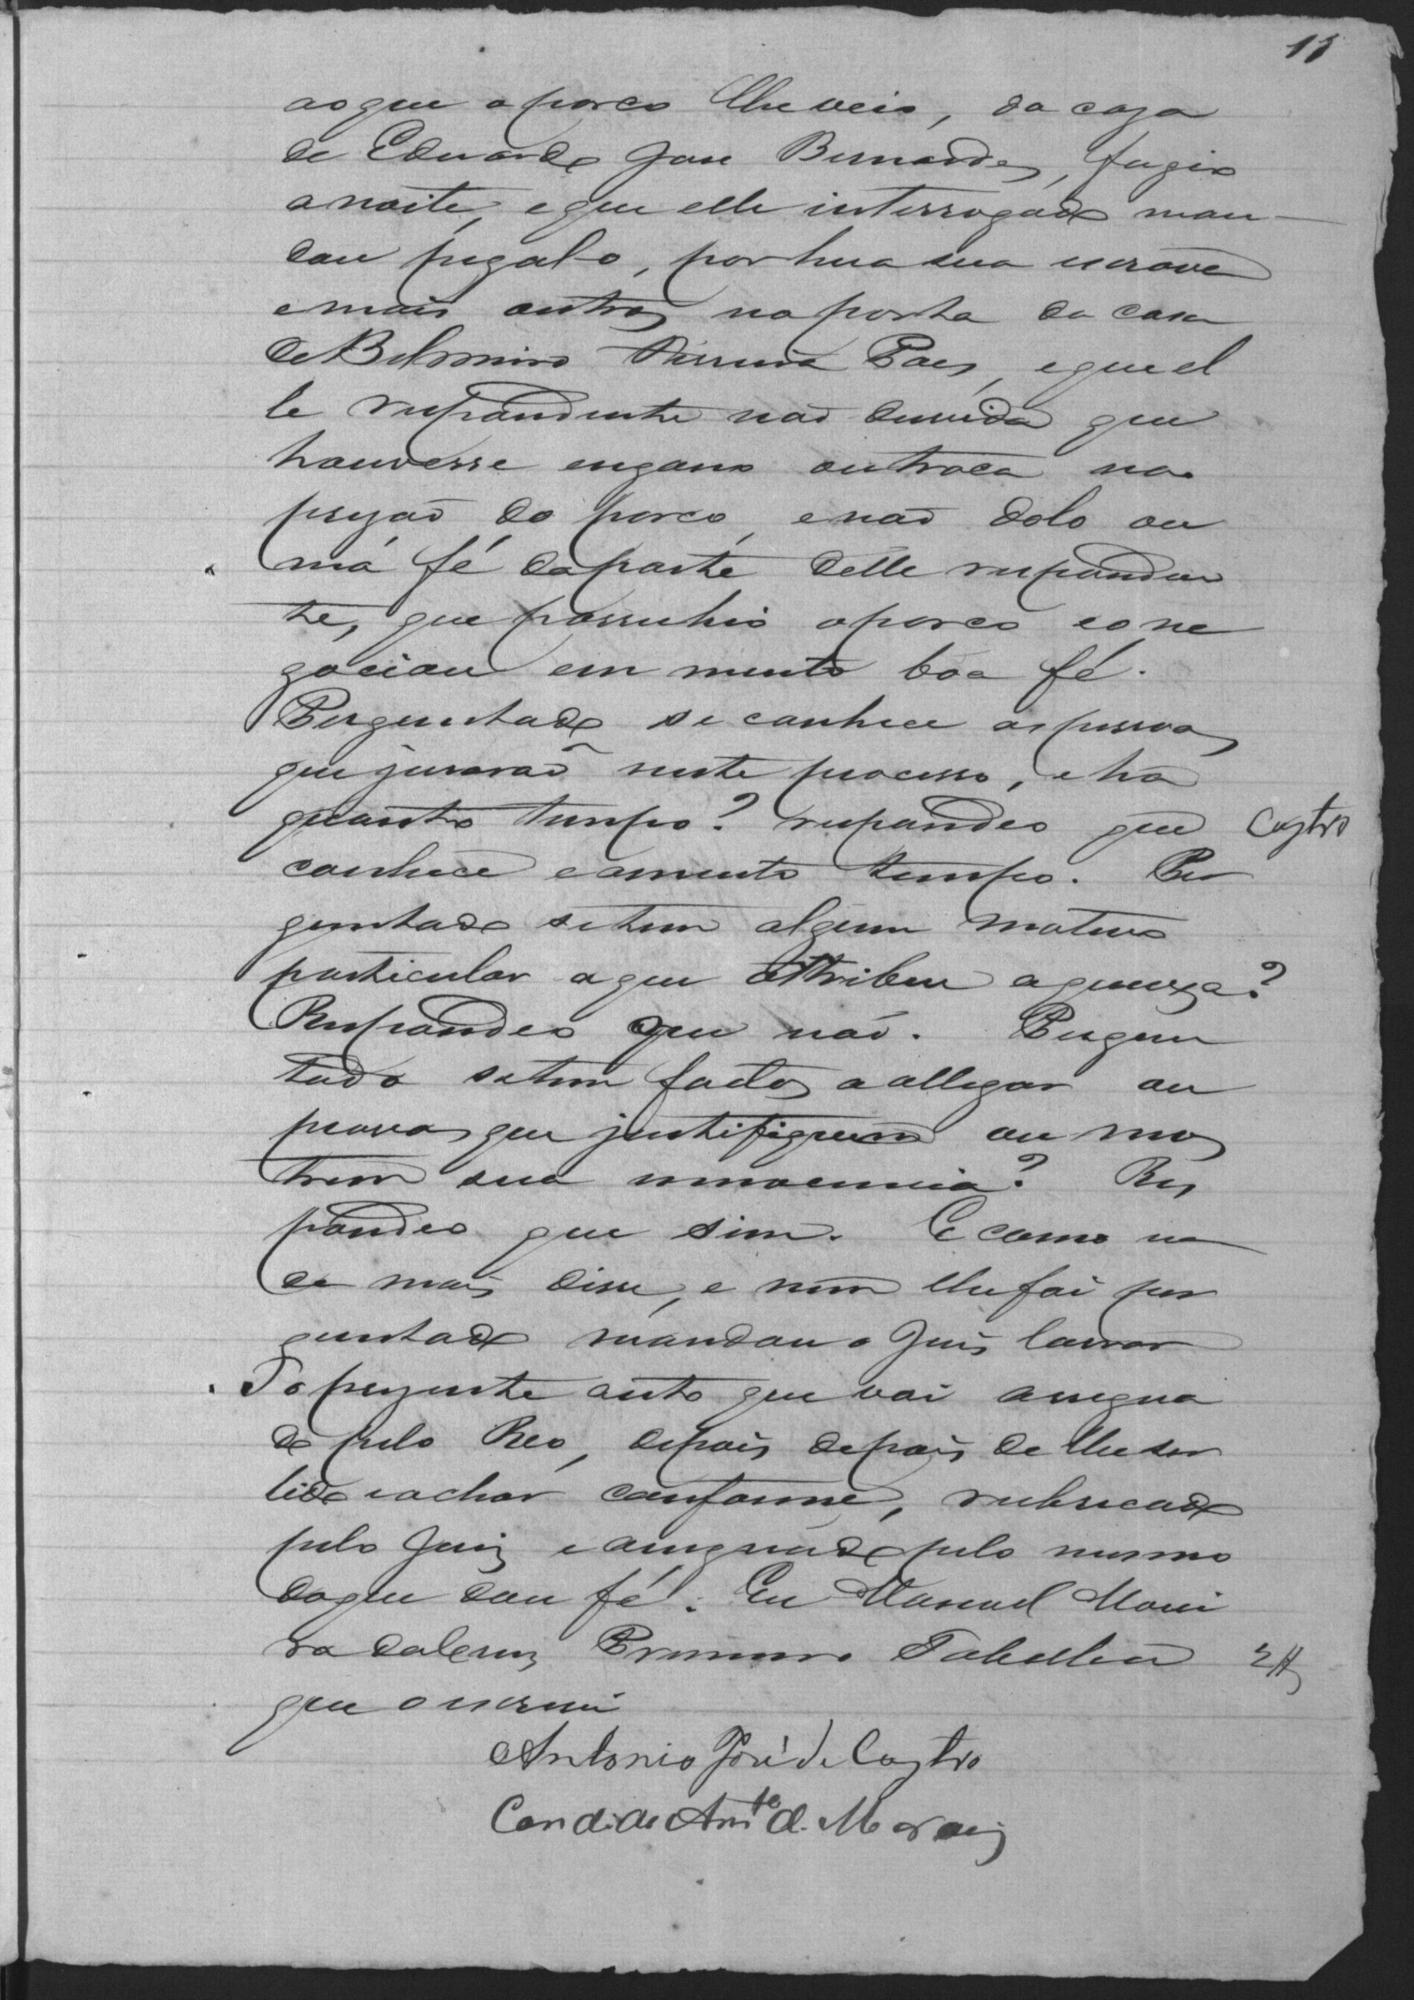 11
aoque o porco lhe veio, da caza
de Eduardo Jose Bernardes, fugio
a noite, e que elle interrogado man-
dou pegalo, por hua sua escrava
e mais outros na porta da casa
de Belmiro Pereira Paes, e que el
le respondente não duvida que
houvesse engano ou troca na
prezão do porco, e não dolo ou
má fé da parte delle responden
te, que possuhio o porco e o ne
gociou em muito bôa fé.
Perguntado se conhece as pessoas
que jurarão neste processo, e ha
quanto tempo? respondeo que
Castro
conhece e a muito tempo. Per
guntado se tem algum motivo
particular a que attribua a queixa?
Respondeo que não. Pergun
tado se tem factos a allegar ou
provas que justifiquem ou mos
trem sua innocencia? Res
pondeo que sim. E como na
da mais disse, e nem lhe foi per
guntado mandou o Juis lavrar
o prezente auto que vai assigna
do pelo Reo, depois depois de lhe ser
lido e achar conforme, rubricado
pelo Juiz e assignado pelo mesmo
do que dou fé. Eu Manoel Morei
ra da Cruz Primeiro Tabellião
que o escrevi
Antonio José de Castro
Candido Antº d. Moraes